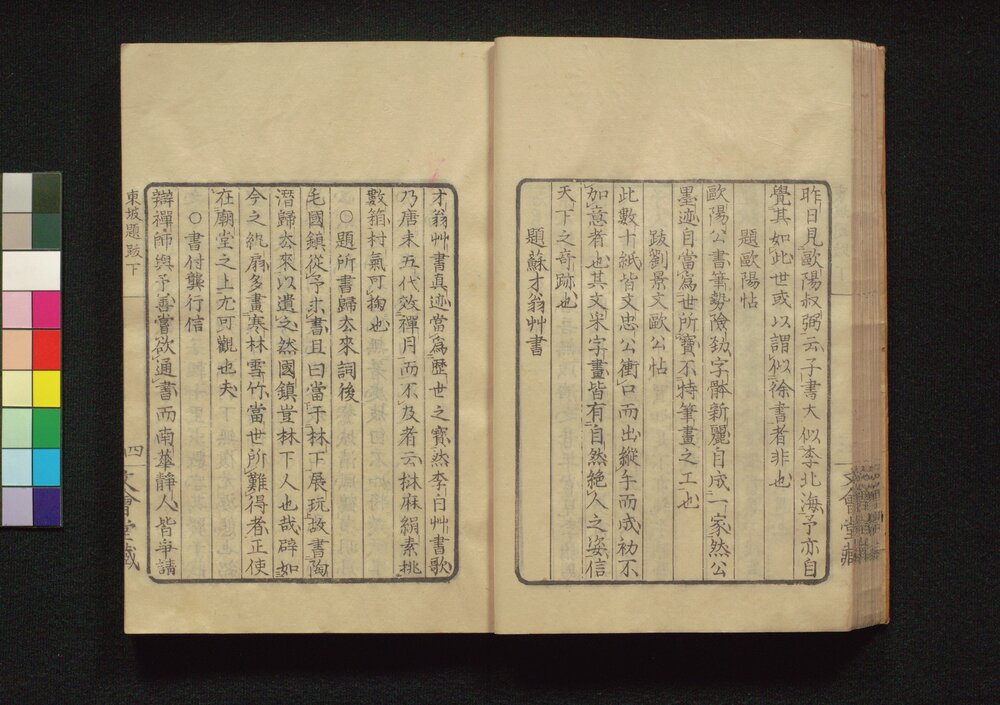 昨日見歐陽叔弼云子書大似李北海予亦自
覺其如此世或以謂似徐書者非也
題歐陽帖
歐陽公書筆勢險勁字體新麗自成一家然公
墨迹自當爲世所寶不待筆畫之工也
跋劉景文歐公帖
此數十紙皆文忠公衝口而出縱手而成初不
如意者也其文采字畫皆有自然絕人之姿信
天下之奇跡也
題蘇才翁艸書
才翁艸書真迹當爲歷世之寶然李白艸書歌
乃唐末五代效禪月而不及者云牀麻絹素排
數箱村氣可掬也
〇題所書歸去來詞後
毛國鎮從予求書且曰當于林下展玩故書陶
潛歸去來以遺之然國鎮豈林下人也哉辟如
今之紈扇多畫寒林雪竹當世所難得者正使
在廟堂之上尤可觀也夫
〇書付龔行信
辯禪師與予善嘗欲通書而南華靜人皆爭請
東坡題跋下
四
文會堂藏